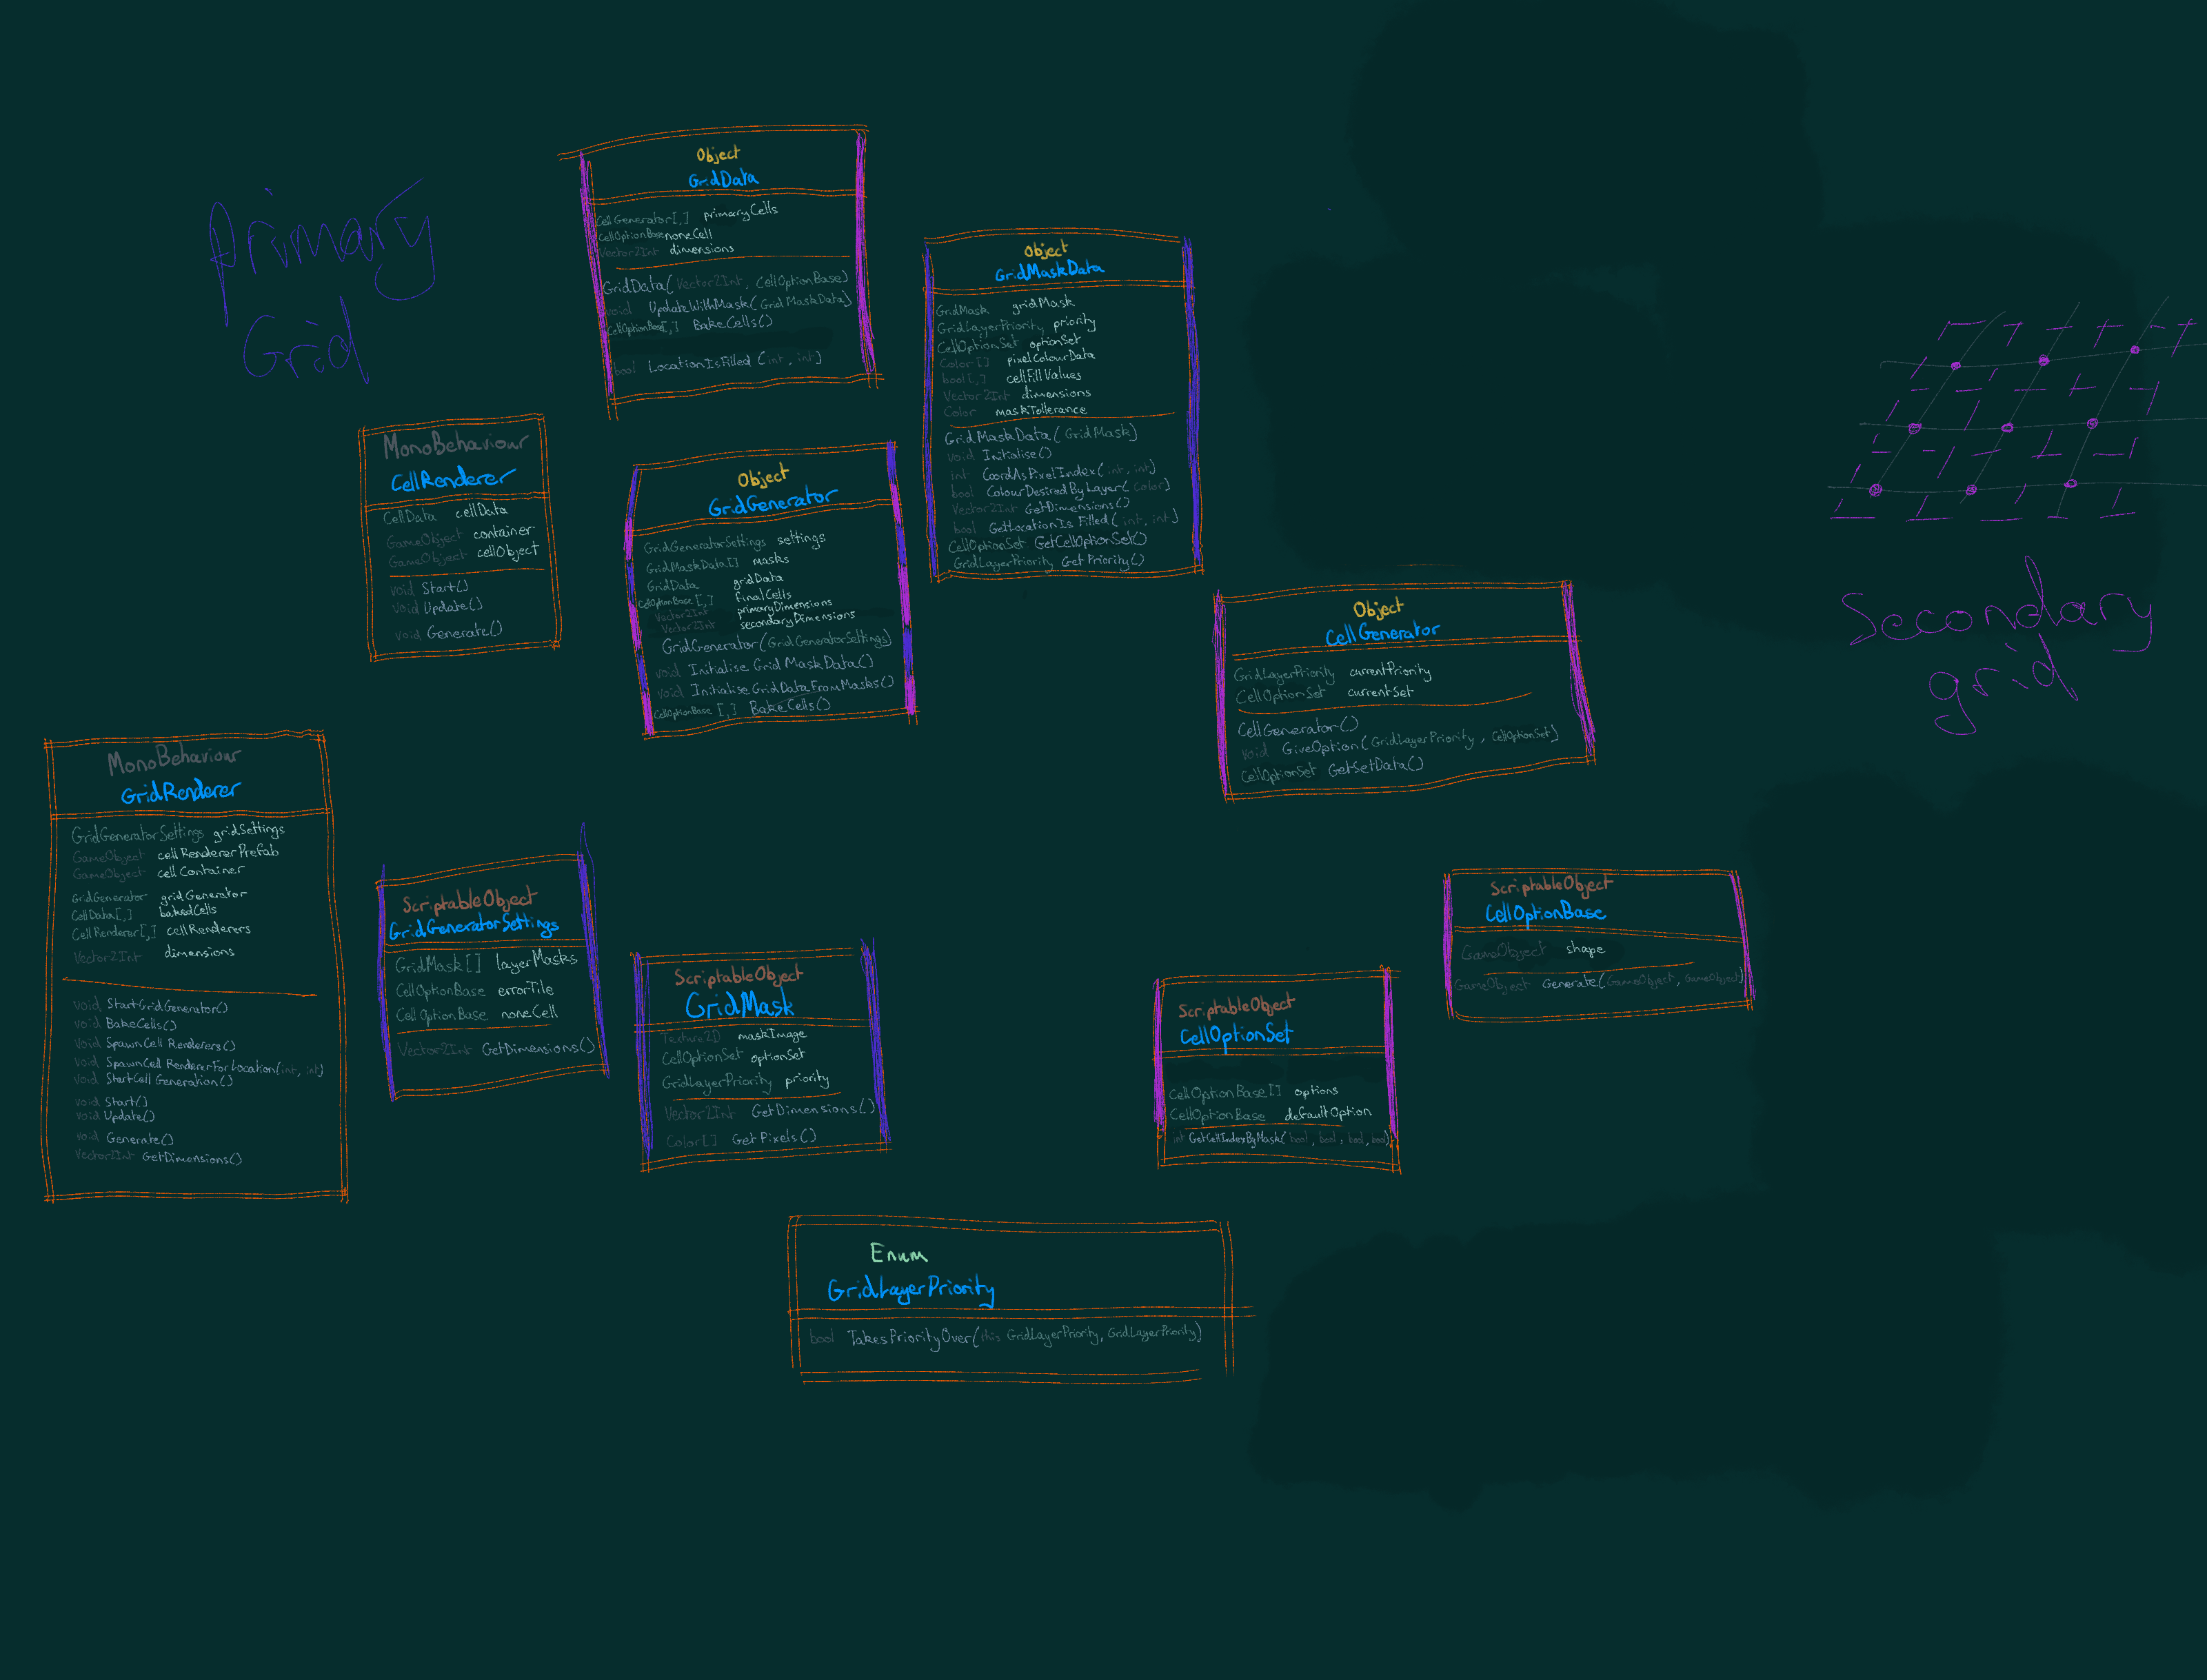 Primary
Grid
Object
GridData
CellGenerator[,] primaryCells
CellOptionBase noneCell
Vector2Int dimensions
GridData(Vector2Int, CellOptionBase)
void UpdateWithMask(GridMaskData)
CellOptionBase[,] BakeCells()
bool LocationIsFilled(int, int)
Object
GridMaskData
GridMask gridMask
GridLayerPriority priority
CellOptionSet optionSet
Color[] pixelColourData
bool[,] cellFillValues
Vector2Int dimensions
Color maskTollerance
GridMaskData(GridMask)
void Initialise()
int CoordAsPixelIndex(int, int)
bool ColourDesiredByLayer(color)
Vector2Int GetDimensions()
bool GetLocationIsFilled(int, int)
CellOptionSet GetCellOptionSet()
GridLayerPriority GetPriority()
MonoBehaviour
CellRenderer
CellData cellData
GameObject container
GameObject cellObject
void Start()
void Update()
void Generate()
Object
GridGenerator
GridGeneratorSettings settings
GridMaskData[] masks
GridData gridData
CellOptionBase[,] finalCells
Vector2Int primaryDimensions
Vector2Int secondaryDimensions
GridGenerator(GridGeneratorSettings)
void InitialiseGridMaskData()
void InitialiseGridDataFromMasks()
CellOptionBase[,] BakeCells()
Object
CellGenerator
GridLayerPriority currentPriority
CellOptionSet currentSet
CellGenerator()
void GiveOption(GridLayerPriority, CellOptionSet)
CellOptionSet GetSetData()
Secondary
grid
MonoBehaviour
GridRenderer
GridGeneratorSettings gridSettings
GameObject cellRendererPrefab
GameObject cellContainer
GridGenerator gridGenerator
CellData[,] bakedCells
CellRenderer[,] cellRenderers
Vector2Int dimensions
void StartGridGenerator()
void BakeCells()
void SpawnCellRenderers()
void SpawnCellRendererForLocation(int, int)
void StartCellGeneration()
void Start()
void Update()
void Generate()
Vector2Int GetDimensions()
ScriptableObject
GridGeneratorSettings
GridMask[] layerMasks
CellOptionBase errorTile
CellOptionBase noneCell
Vector2Int GetDimensions()
ScriptableObject
GridMask
Texture2D maskImage
CellOptionSet optionSet
GridLayerPriority priority
Vector2Int GetDimensions()
Color[] GetPixels()
ScriptableObject
CellOptionSet
CellOptionBase[] options
CellOptionBase defaultOption
int GetCellIndexByMask(bool, bool, bool, bool)
ScriptableObject
CellOptionBase
GameObject shape
GameObject Generate(GameObject, GameObject)
Enum
GridLayerPriority
bool TakesPriorityOver(this GridLayerPriority, GridLayerPriority)